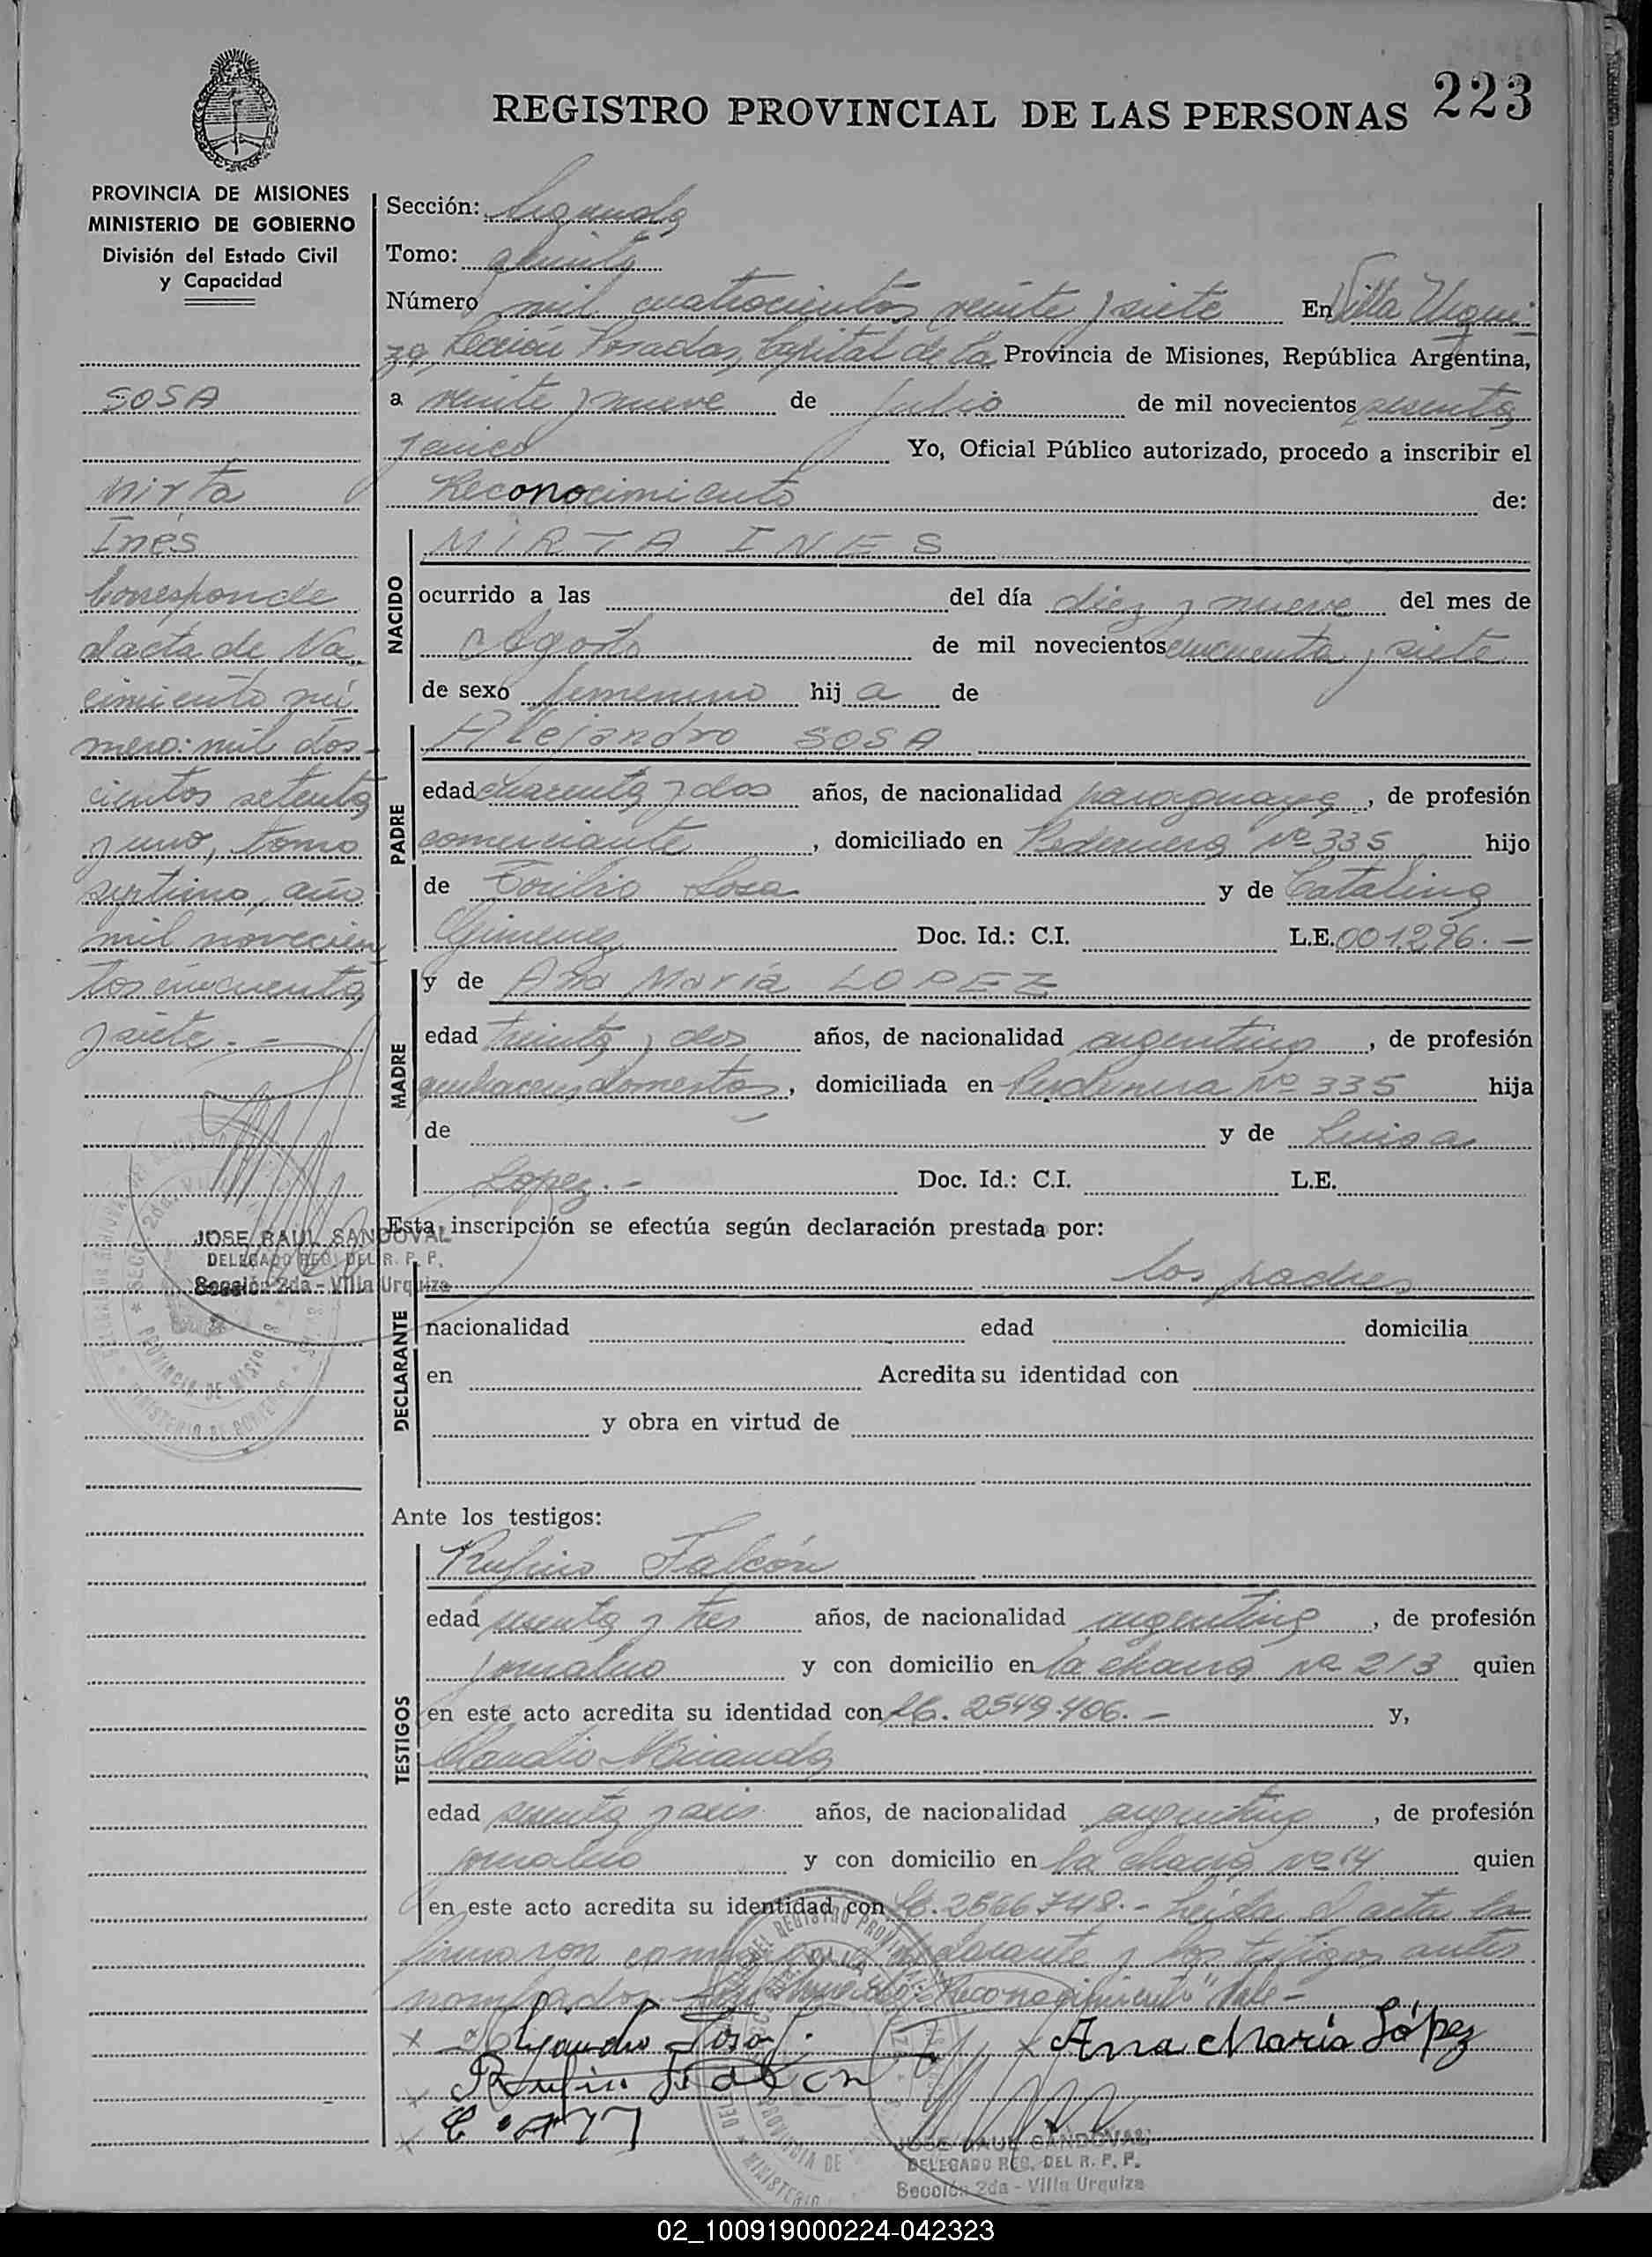 223
REGISTRO PROVINCIAL DE LAS PERSONAS
PROVINCIA DE MISIONES
MINISTERIO DE GOBIERNO
División del Estado Civil
y Capacidad
SOSA
Mirta
Inés
Corresponde
al acta de Na
cimiento nú
mero: mil dos-
cientos setenta
y uno, tomo
septimo, año
mil novecien
tos cincuenta
y siete.-
JOSE RAUL SANDOVAL
DELEGADO REG. DEL R. P. P.
Sección 2da - Villa Urquiza
Sección: Segunda
Tomo: quinto
Número mil cuatrocientos veinte y siete En Villa Urqui-
za, Sección Posadas, Capital de la Provincia de Misiones, República Argentina,
a veinte y nueve de Julio de mil novecientos sesenta
y cinco Yo, Oficial Público autorizado, procedo a inscribir el
Reconocimiento de:
NACIDO
MIRTA INES
ocurrido a las del día diez y nueve del mes de
Agosto de mil novecientos cincuenta y siete
de sexo femenino hij a de
PADRE
Alejandro SOSA
edad cuarenta y dos años, de nacionalidad paraguaya, de profesión
comerciante, domiciliado en Pedernera Nº 335 hijo
de Sosa y de Catalina
Gimenez Doc. Id.: C.I. L.E. 001.296.-
MADRE
y de Ana María LOPEZ
edad treinta y dos años, de nacionalidad argentina, de profesión
quehaceres domesticos, domiciliada en Pedernera Nº 335 hija
de y de Luisa
Lopez.- Doc. Id.: C.I. L.E.
Esta inscripción se efectúa según declaración prestada por:
DECLARANTE
los padres
nacionalidad edad domicilia
en Acredita su identidad con
y obra en virtud de
Ante los testigos:
TESTIGOS
Rufino Falcón
edad sesenta y tres años, de nacionalidad argentina, de profesión
jornalero y con domicilio en la chacra Nº 213 quien
en este acto acredita su identidad con 2549.406.- y,
Claudio Miranda
edad sesenta y seis años, de nacionalidad argentina, de profesión
jornalero y con domicilio en la chacra Nº 14 quien
en este acto acredita su identidad con 2566748.- Leída el acta la
firmaron conmigo declarante y los testigos antes
nombrados. "Reconocimiento" Vale-
x Alejandro Sosa x Ana María López
x Rufino Falcon
x
JOSE RAUL SANDOVAL
DELEGADO REG. DEL R. P. P.
Sección 2da - Villa Urquiza
02_100919000224-042323